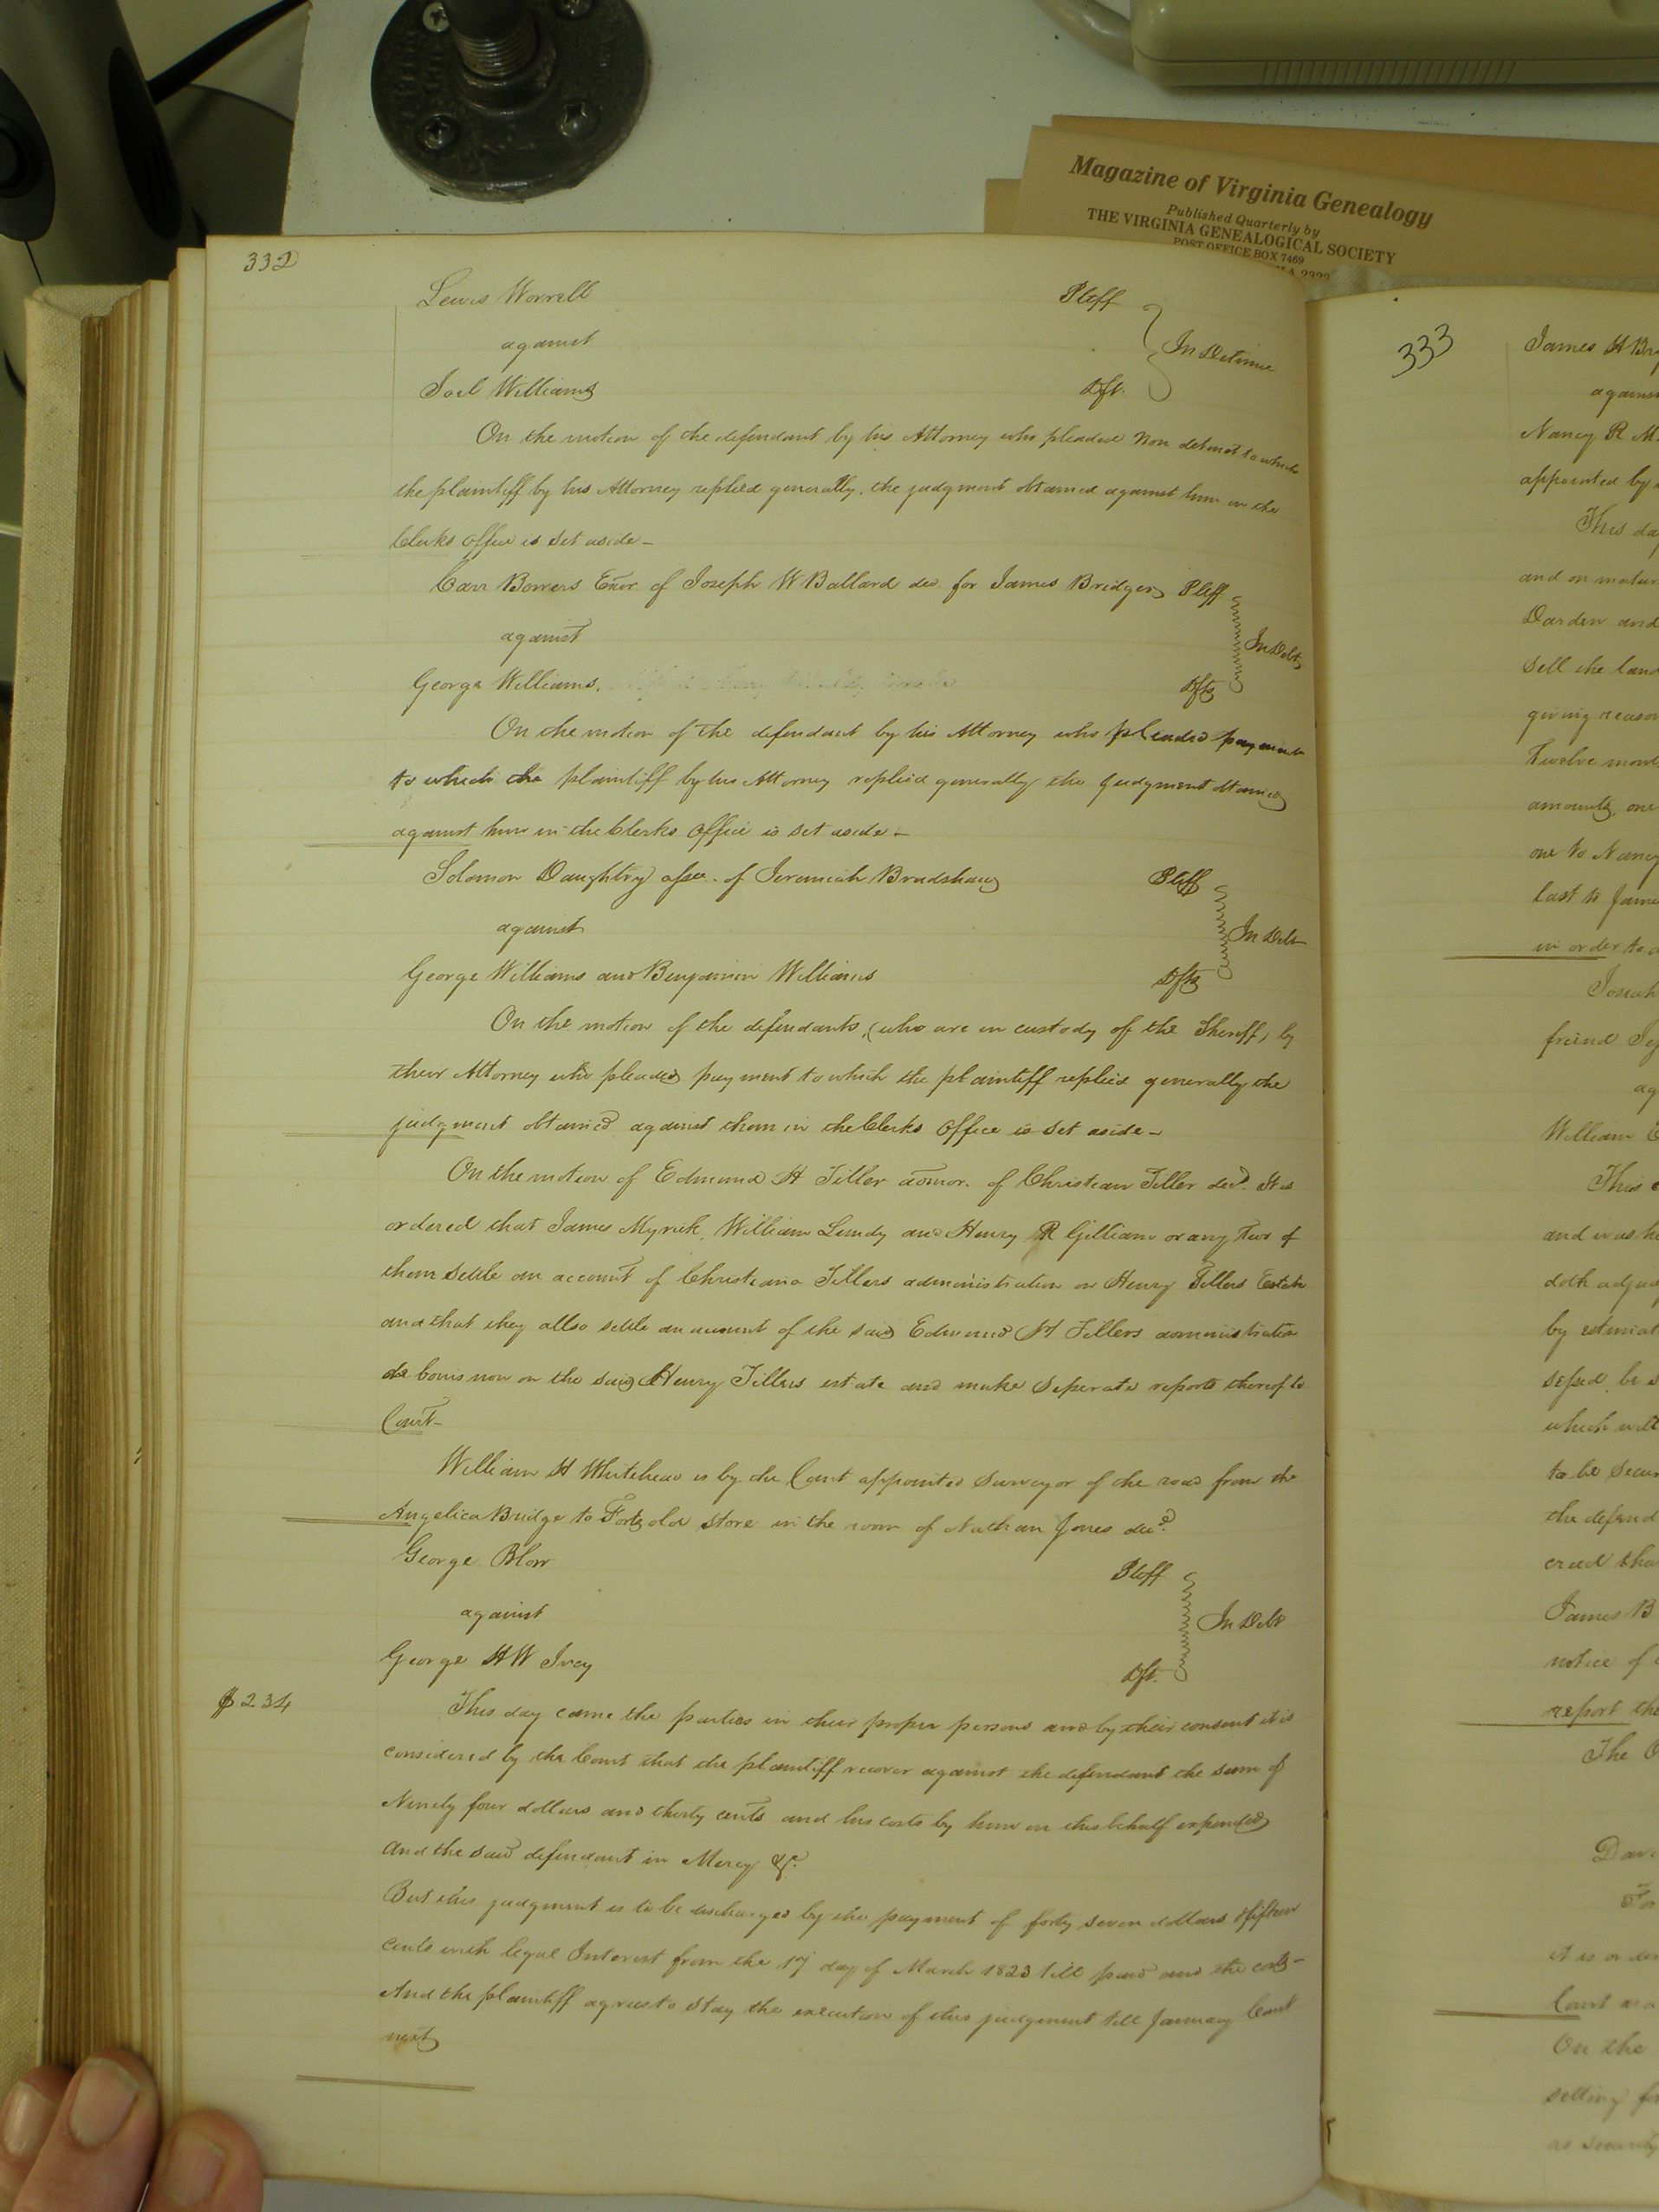 Magazine of Virginia Genealogy
Published Quarterly by
THE VIRGINIA GENEALOGICAL SOCIETY
POST OFFICE BOX 7469
332
Lewis Worrell Pltff
against In Detinue
Joel Williams Dft.
On the motion of the defendant by his Attorney who pleaded Non detinet to which
the plaintiff by his Attorney replied generally, the judgment obtained against him in the
Clerks office is set aside —
Carr Bowers Exor. of Joseph W Ballard dec for James Bridger Pltff
against In Debt
George Williams. Dfts
On the motion of the defendant by his Attorney who pleaded payment
to which the plaintiff by his Attorney replied generally the judgment obtained
against him in the Clerks office is set aside —
Solomon Daughtry assee. of Jeremiah Bradshaw Pltff
against In Debt
George Williams and Benjamin Williams Dfts
On the motion of the defendants, (who are in custody of the Sheriff) by
their Attorney who pleaded payment to which the plaintiff replied generally the
judgment obtained against them in the Clerks office is set aside —
On the motion of Edmund H Tiller admor. of Christian Tiller decd. It is
ordered that James Myrick, William Lundy and Henry R Gilliam or any two of
them settle an account of Christiana Tillers administration on Henry Tillers Estate
and that they allso settle an account of the said Edmund H Tillers administration
de bonis non on the said Henry Tillers estate and make seperate reports thereof to
Court —
William H Whitehead is by the Court appointed surveyor of the road from the
Angelica Bridge to Forts old store in the room of Nathan Jones decd.
George Blow Pltff
against In Debt
George H W Ivey Dft.
$234
This day came the parties in their proper persons and by their consent it is
considered by the Court that the plaintiff recover against the defendant the sum of
Ninety four dollars and thirty cents and his costs by him in this behalf expended
And the said defendant in Mercy &c.
But this judgment is to be discharged by the payment of forty seven dollars & fifteen
cents with legal Interest from the 17 day of March 1823 till paid and the costs —
And the plaintiff agrees to stay the execution of this judgment till January Court
next
333
James H
against
Nancy R
appointed by
This day
and on
Darden and
sell the land
giving reason
Twelve
amounts, one
one to Nancy
last to James
in order to
Josiah
friend
William
This
and was
doth
by
be
which will
to be
the defend
James B
notice of
report the
The
it is
Court
On the
selling
as security